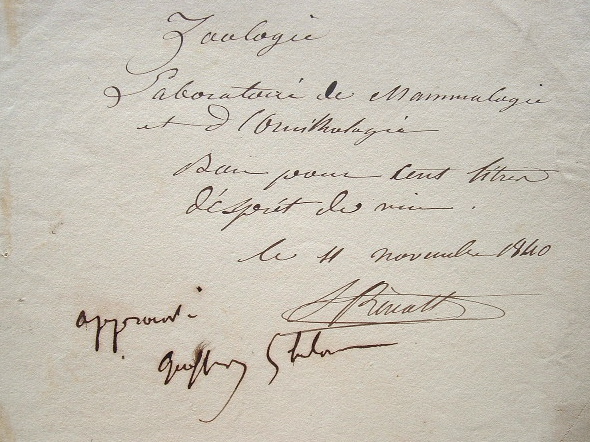 Zoologie
Laboratoire de Mammalogie
et d'Ornithologie
Bon pour cent litres
d'esprit de vin.
le 11 novembre 1840
approuvé
Geoffroy St hilaire